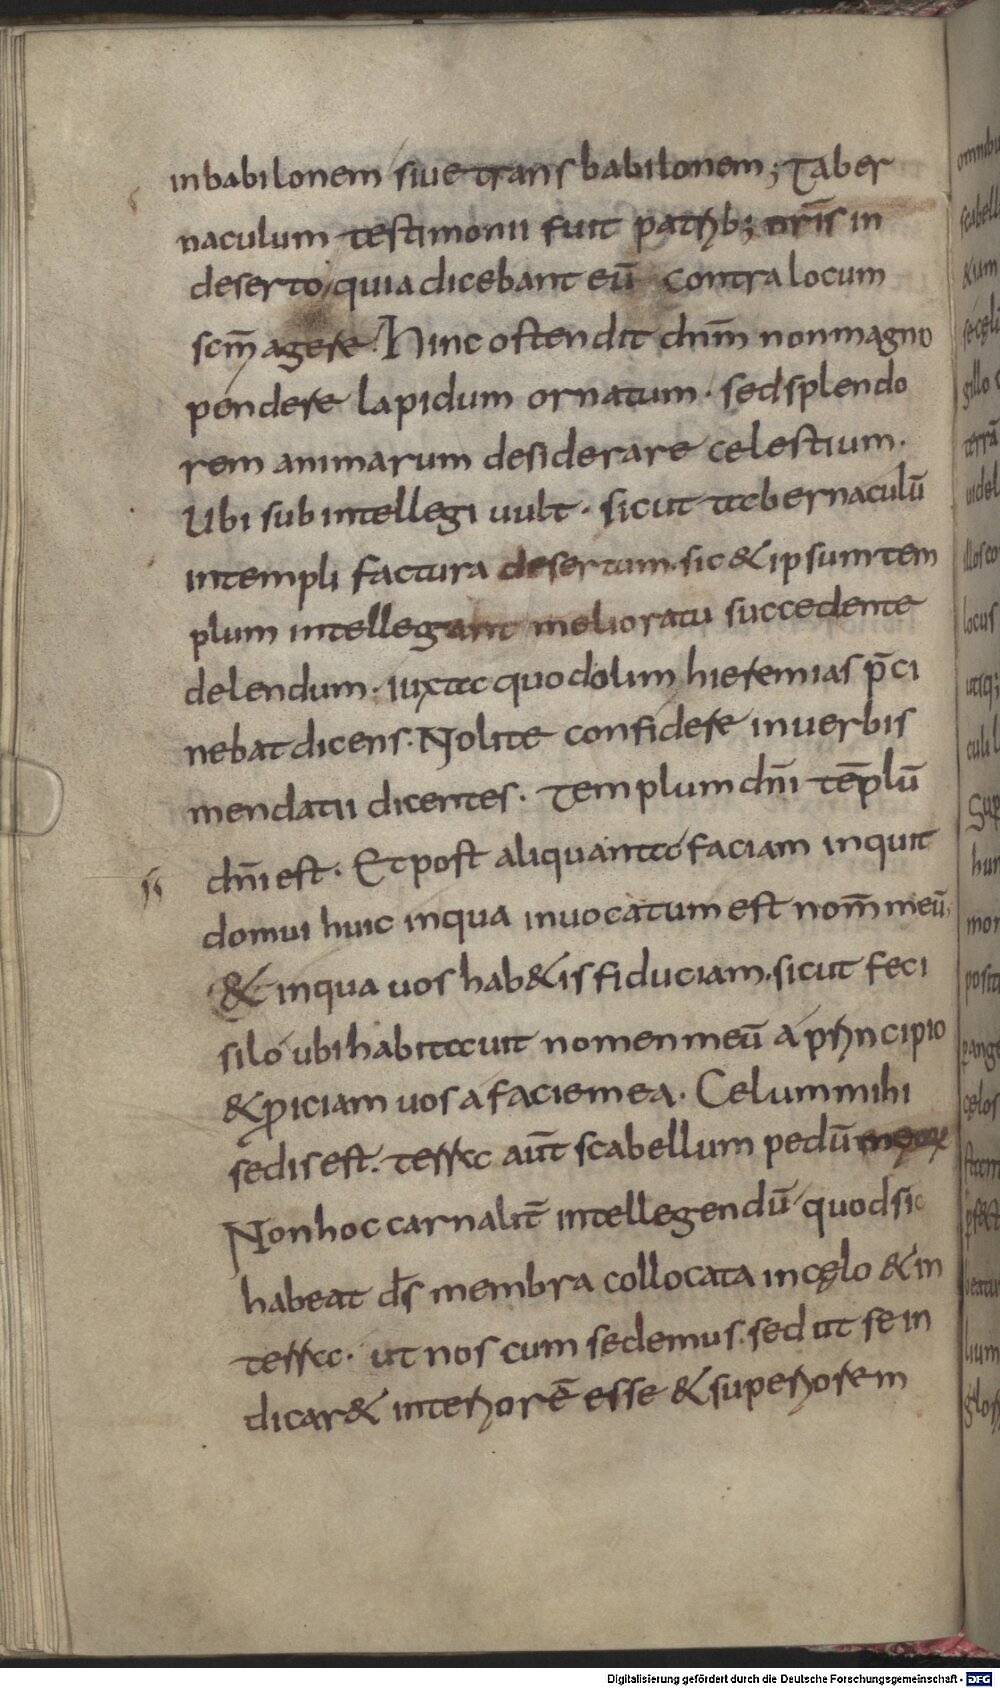 inbabilonem siue trans babilonem; Taber
naculum testimonii fuit patrib; nr̄is in
deserto, quia dicebant eū contra locum
scm̄ agere. Hinc ostendit dnm̄ nonmagno
pendere lapidum ornatum. sedsplendo
rem animarum desiderare celestium.
Ubi subintellegi uult. sicut tabernaculū
intempli factura desertum. sic & ipsumtem
plum intellegant melioratu succedente
delendum. iuxta quodolim hieremias p̄ci
nebat dicens. Nolite confidere inuerbis
mendatii dicentes. Templum dnī tēplū
dnī est. Et post aliquanta faciam inquit
domui huic inqua inuocatum est nom̄ meū,
& inqua uos hab&is fiduciam. sicut feci
silo ubi habitauit nomen meū a principio
& ꝓiciam uos a facie mea. Celum mihi
sedis est. terra aut̄ scabellum pedū meoꝝ
Non hoc carnalit̄ intellegendū quod sic
habeat ds̄ membra collocata in cęlo & in
terra. ut nos cum sedemus. sed ut se in
dicar& interiorē esse & superiorem
omnibu
scabell
&um
secęli
gillo c
terrā
uidel
illosco
locus
utiq;
culi l
Sup
hun
mor
posit
pang
cęlos
beatu
lium
glori
Digitalisierung gefördert durch die Deutsche Forschungsgemeinschaft - DFG